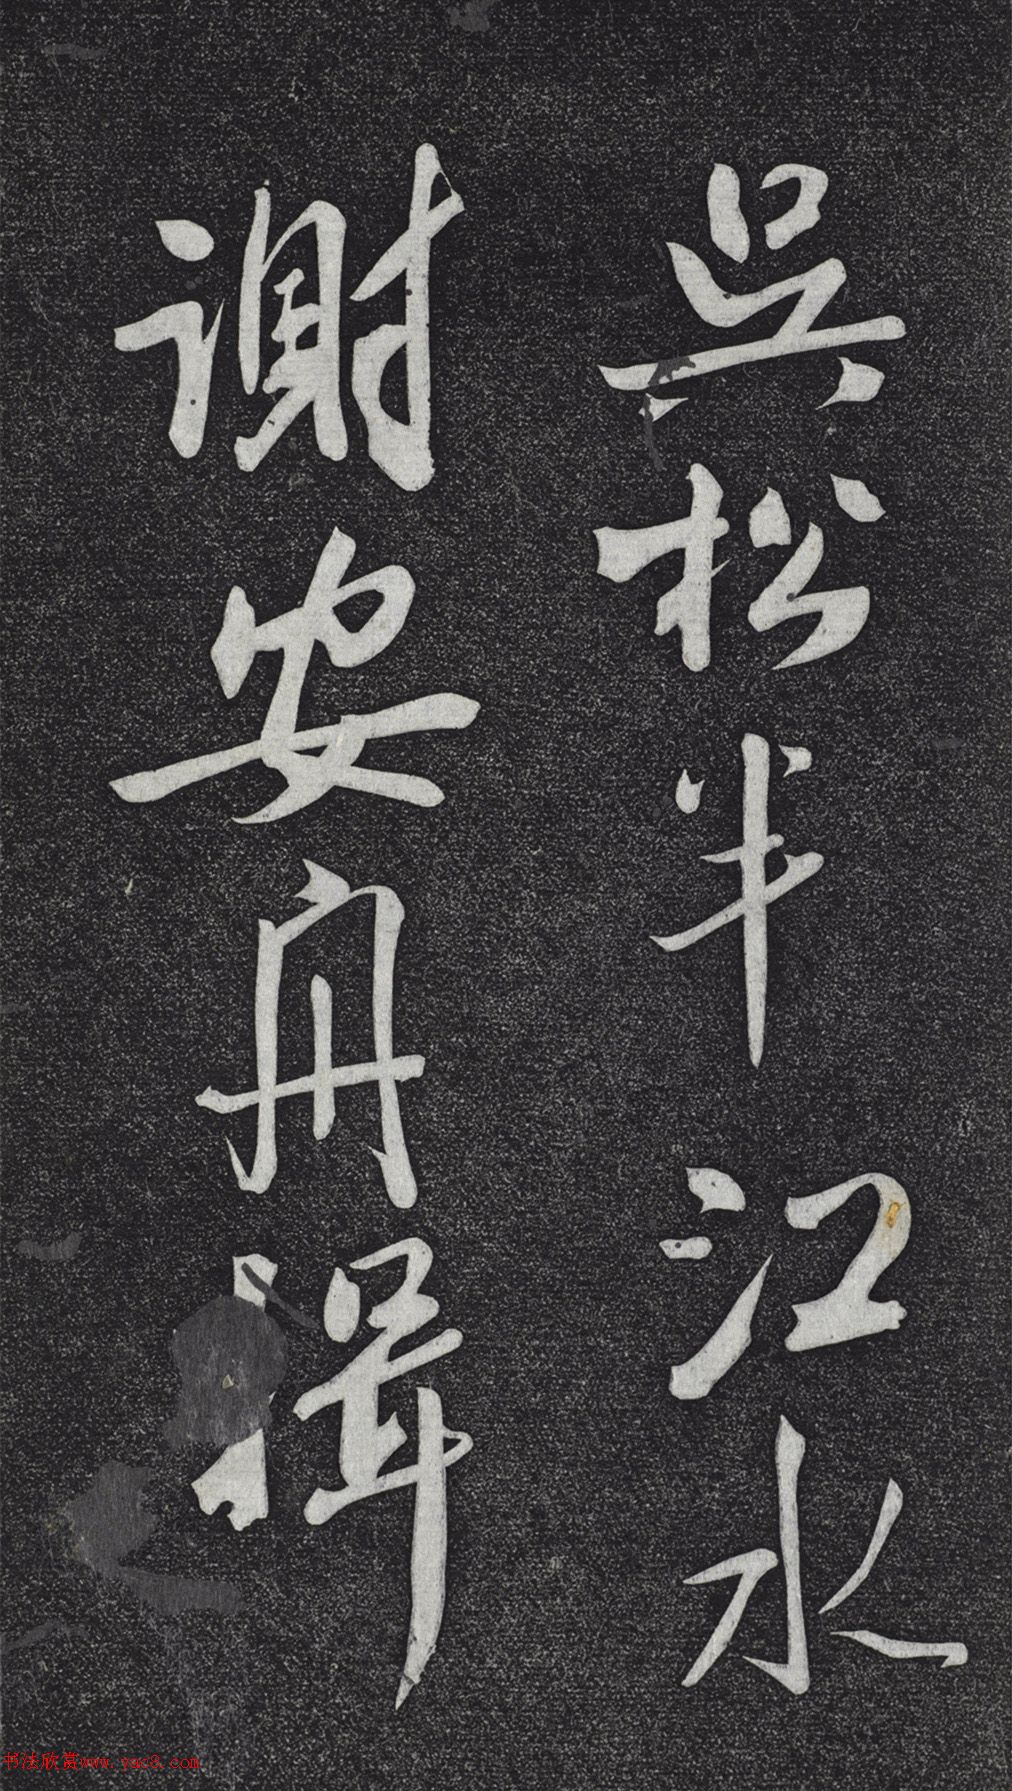 吳松半江水
謝安舟揖
书法欣赏www.yac8.com